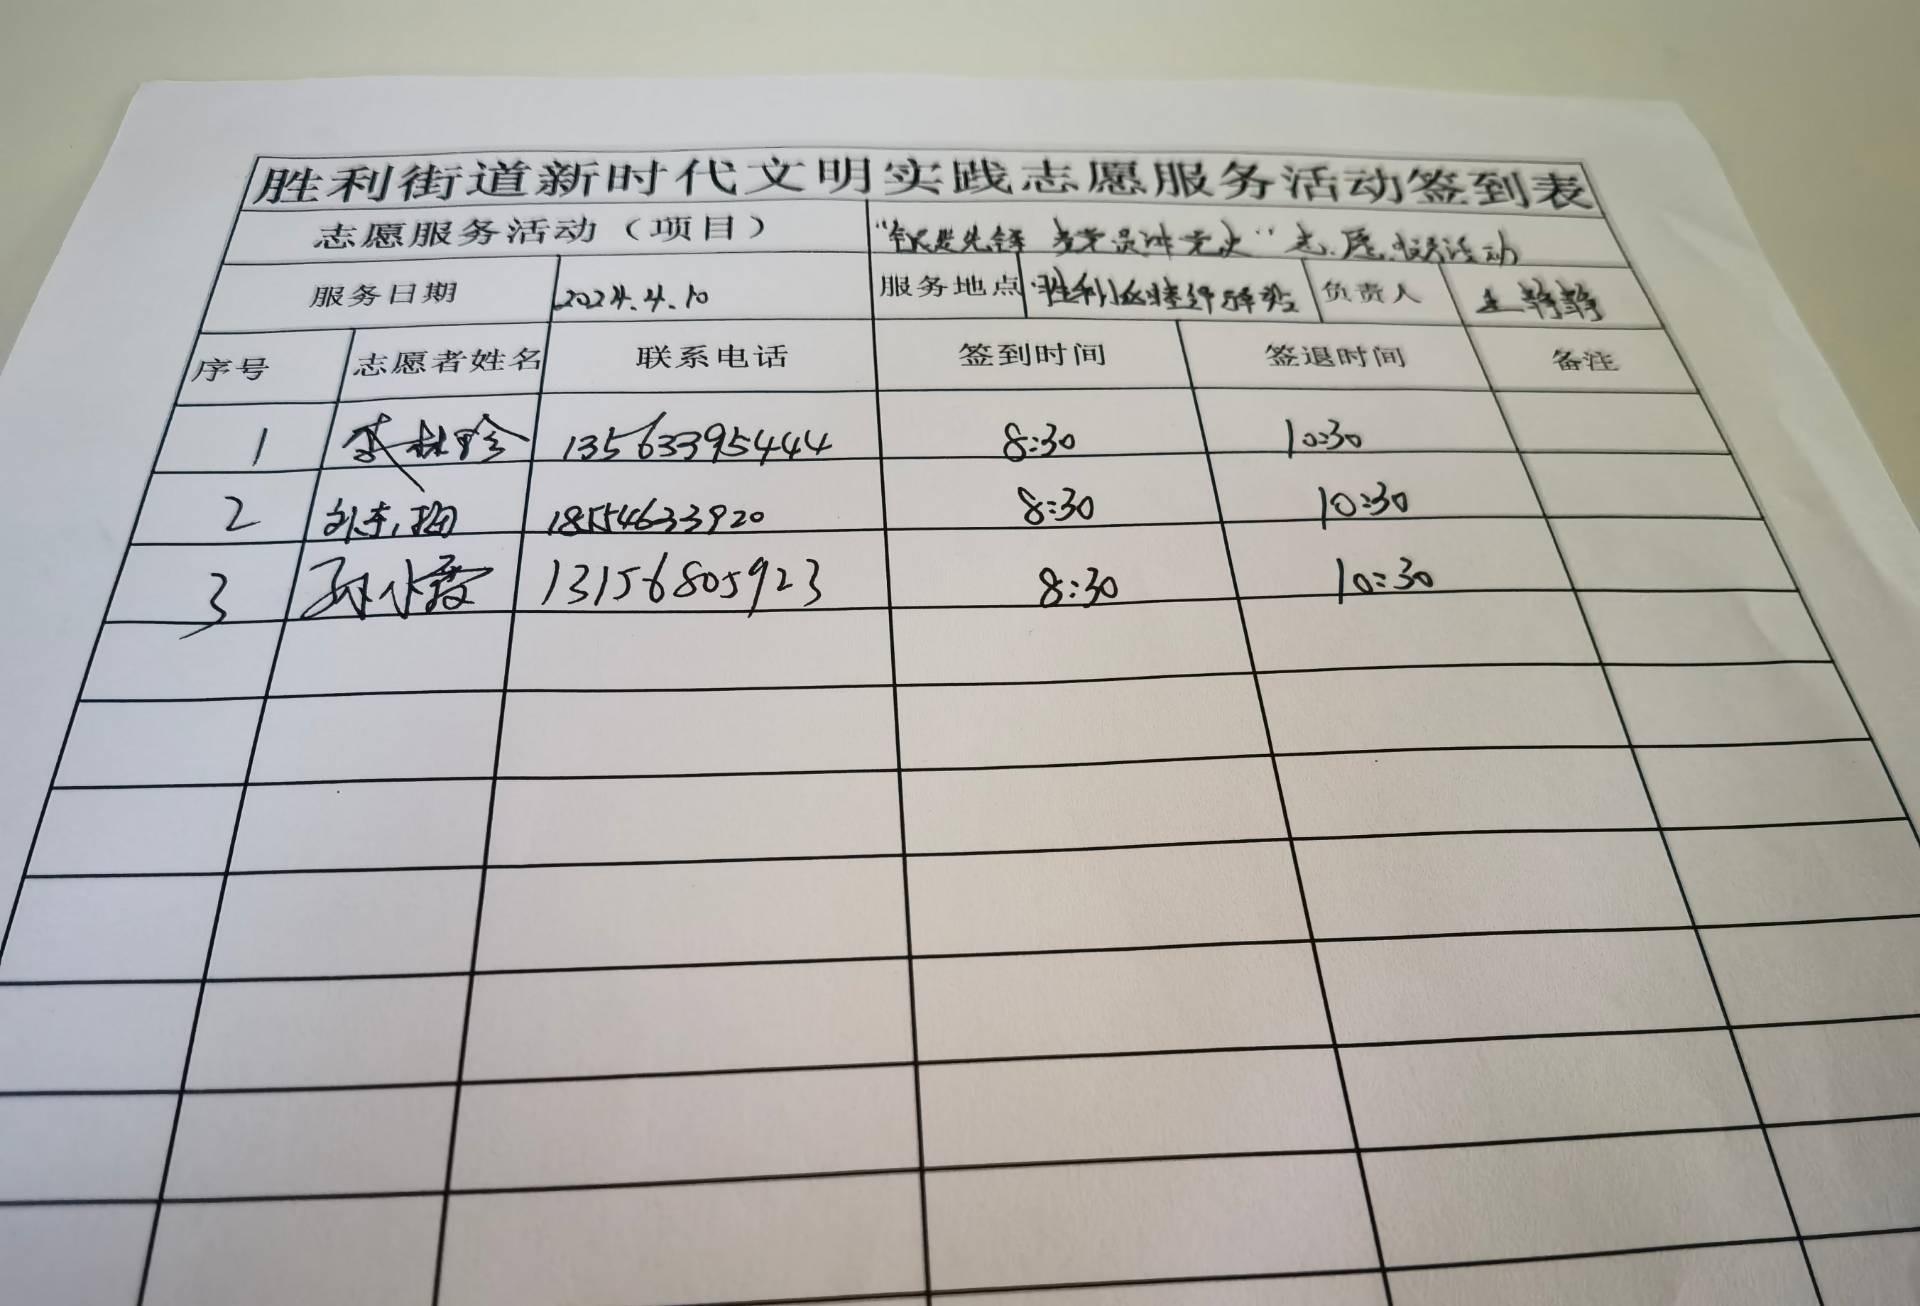 胜利街道新时代文明实践志愿服务活动签到表
志愿服务活动（项目） “银发先锋 老党员冲先火”志愿服务活动
服务日期 2024.4.10 服务地点 胜利 驿站 负责人 王静静
序号 志愿者姓名 联系电话 签到时间 签退时间 备注
1 李林珍 13563395444 8:30 10:30
2 刘 18554633920 8:30 10:30
3 孙小霞 13156805923 8:30 10:30